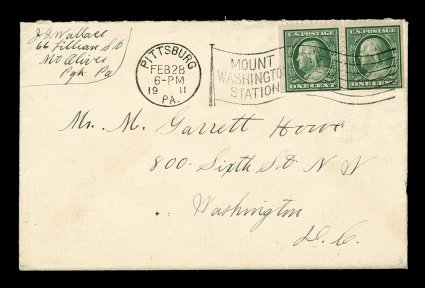 J A Wallace
66 Lillian St
Mt Oliver
Pgh. Pa
PITTSBURG
FEB 28
6-PM
19 11
PA.
MOUNT
WASHINGTON
STATION
U.S. POSTAGE
ONE CENT
U.S. POSTAGE
ONE CENT
Mr. M. Garrett Howe
800. Sixth St N W
Washington
D. C.